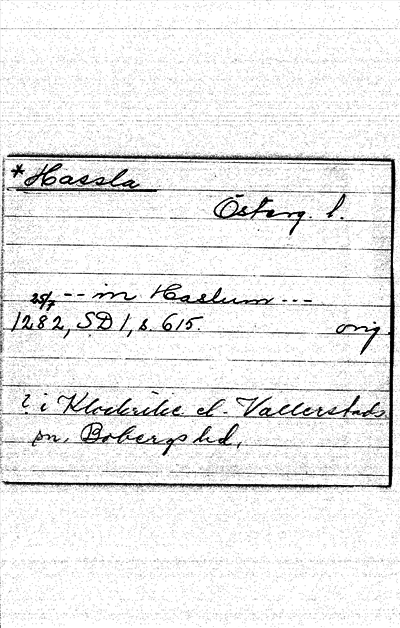 *Hassla
Österg. l.
25/7 -- in Haslum ---
1282, SD 1, s. 615. orig.
? i Klockrike el. Vallerstads
sn, Bobergs hd.